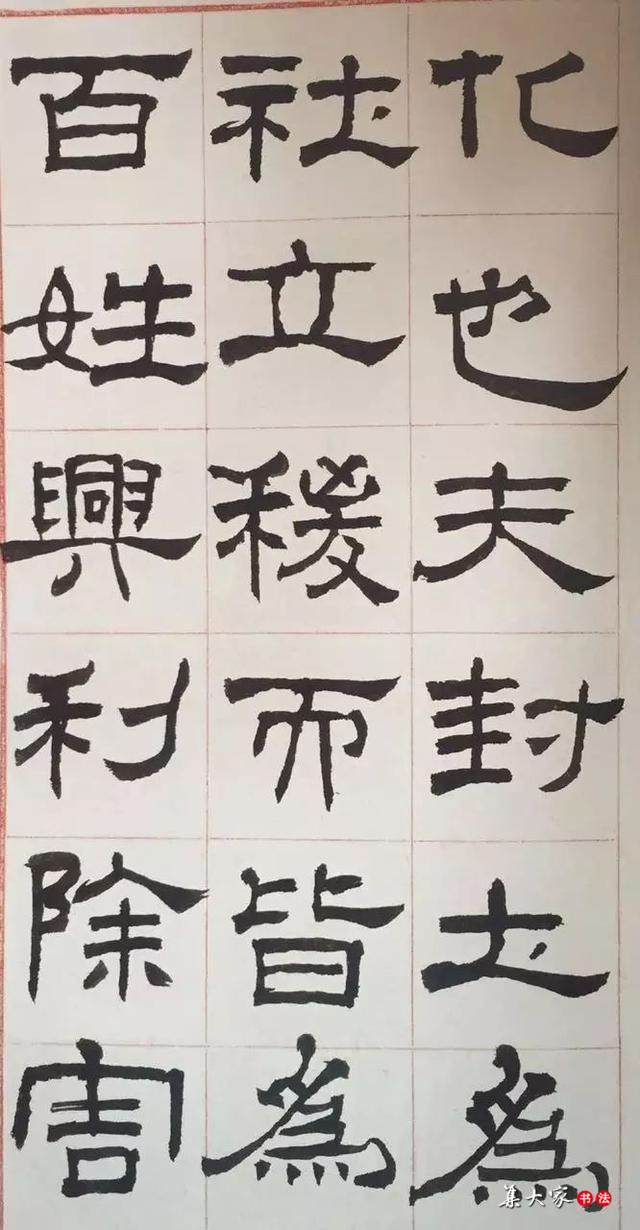 化也夫封土為
社立稷而皆為
百姓興利除害
集大家書法